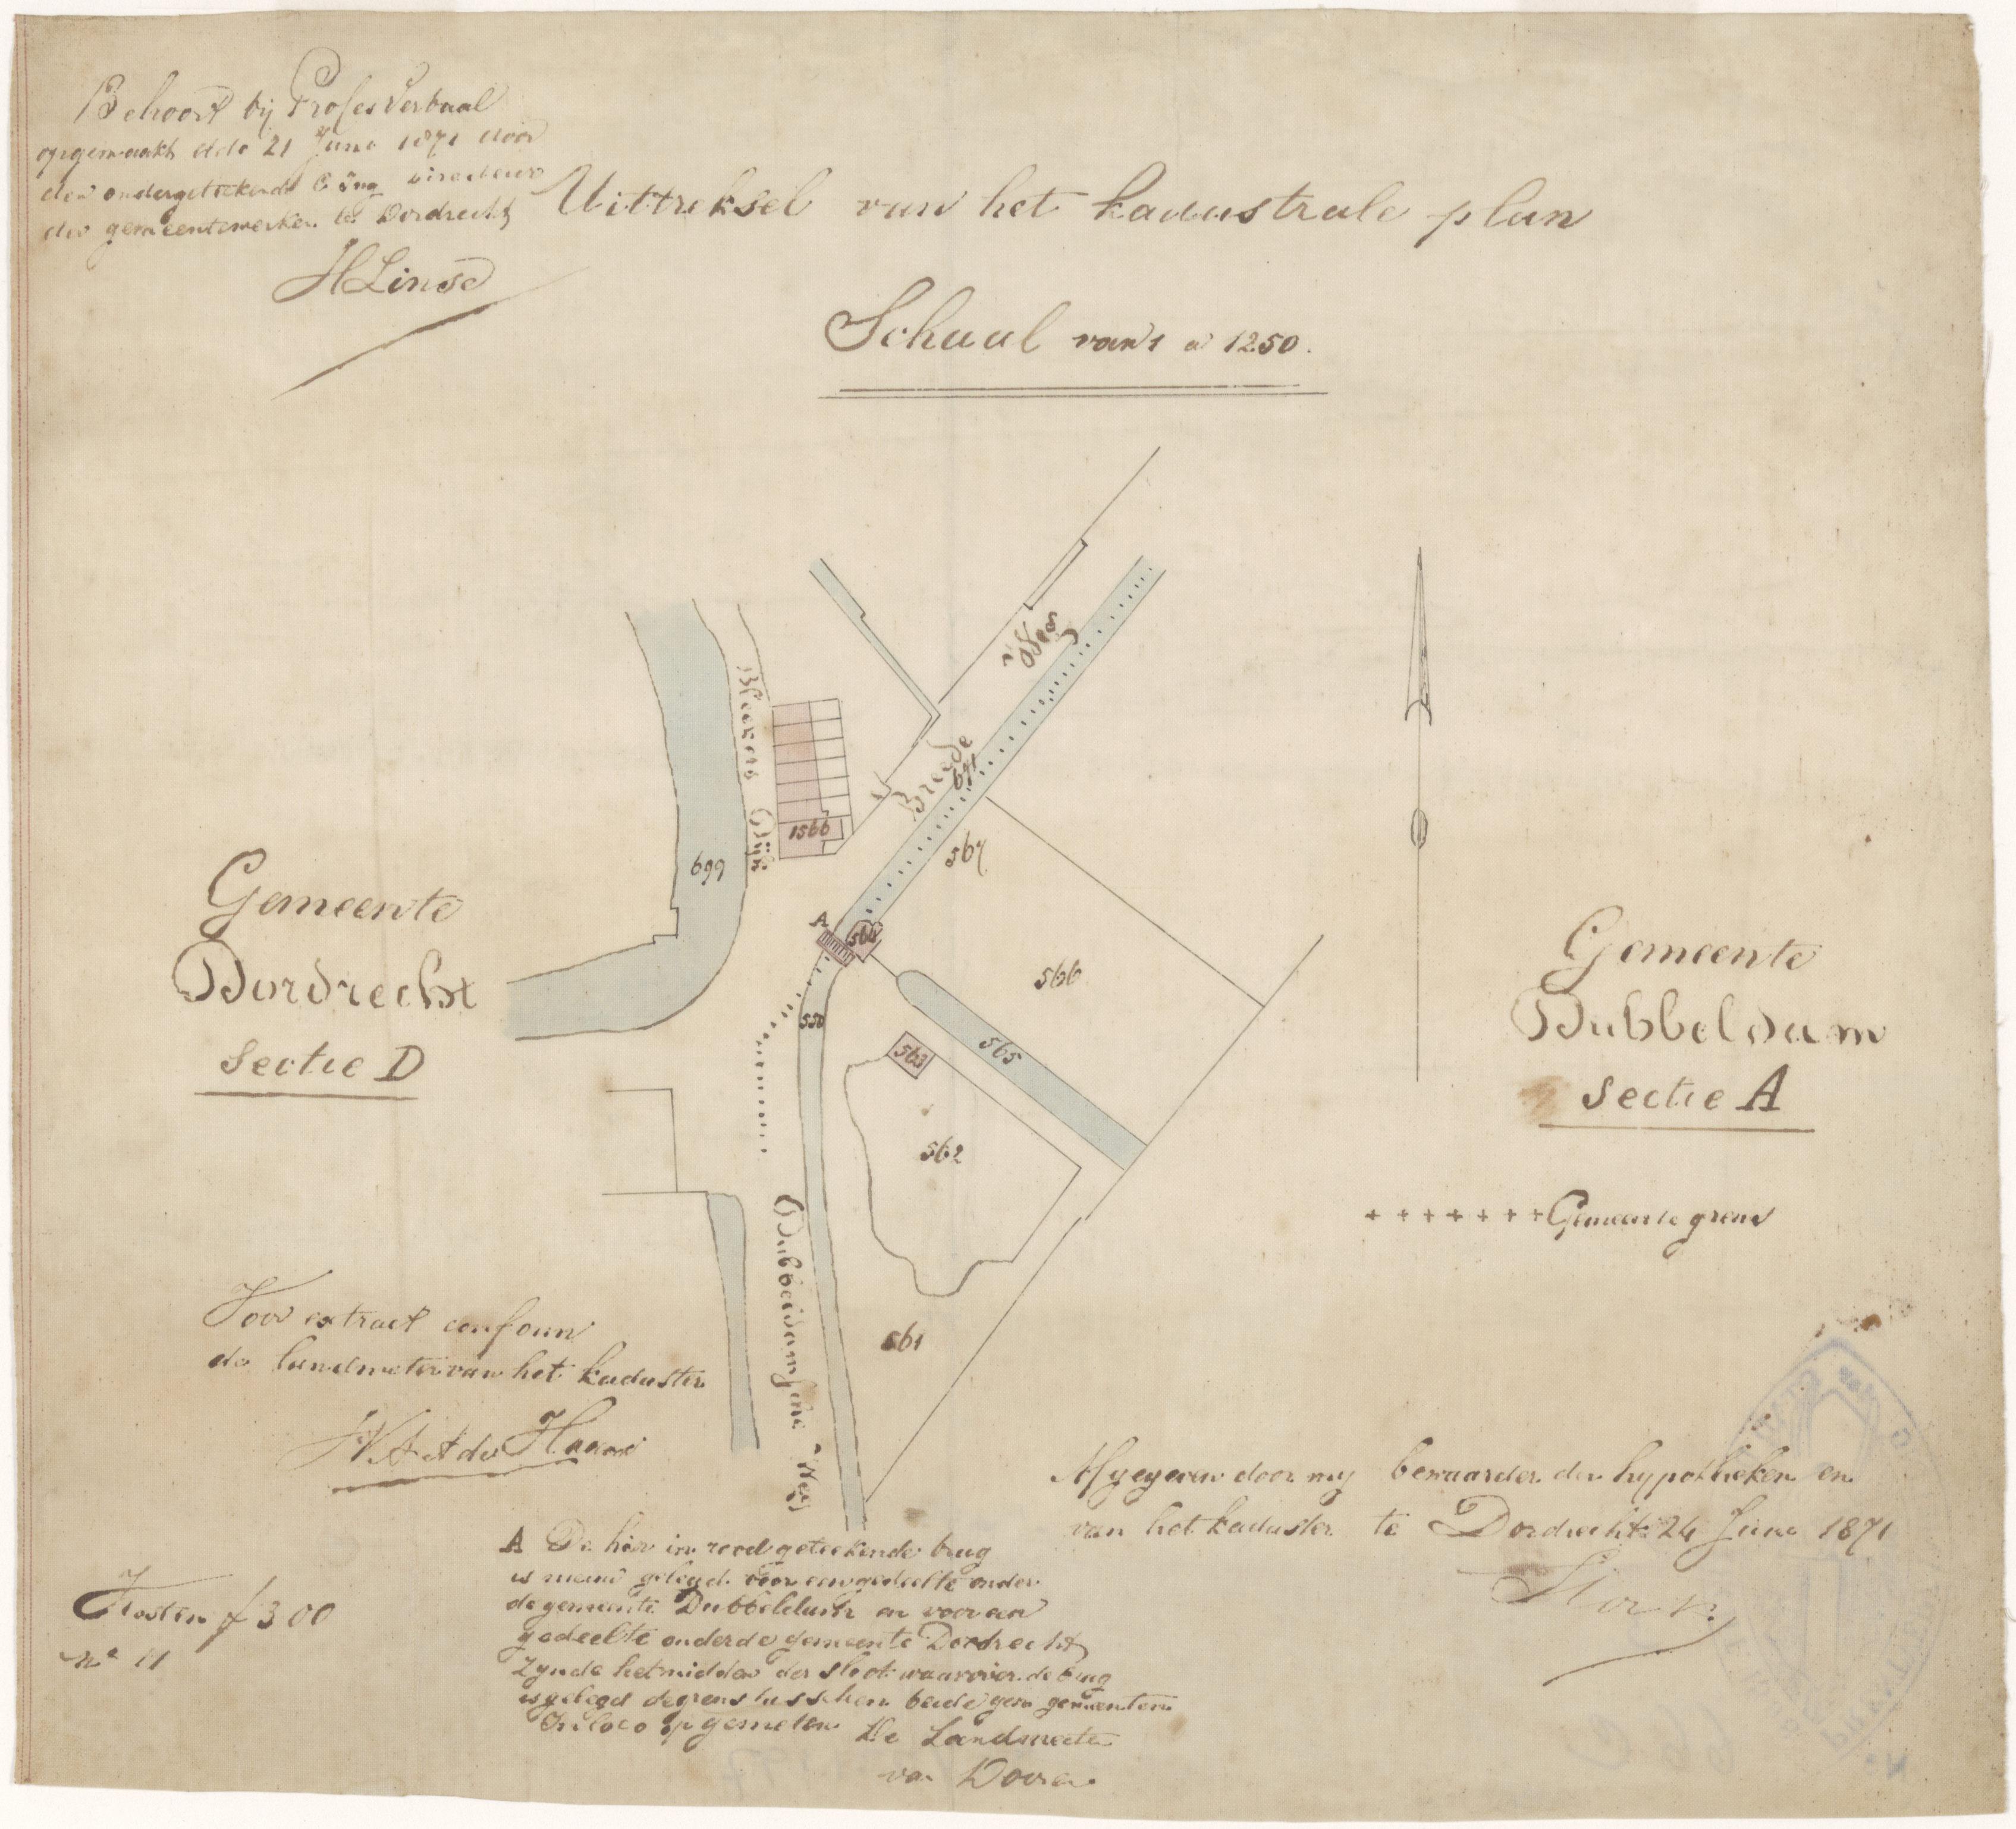 Behoort bij Proses Verbaal
opgemaakt dd° 21 Juni 1871 door
den ondergetekende Directeur
der gemeentewerken te Dordrecht
HLinse
Uittreksel van het kadastrale plan
Schaal van 1 a 1250.
Breede Weg
Bleekers Dijk
691
1566
567
699
A
564
566
558
565
563
562
Gemeente
Dordrecht
Sectie D
Gemeente
Dubbeldam
Sectie A
+ + + + + + + Gemeente grens
Dubbeldamsche Weg
561
Voor extract conform
de landmeter van het kadaster
Afgegeven door my bewaarder der hypotheken en
van het kadaster te Dordrecht 24 Juni 1871
Stork
A De hier in rood geteekende brug
is nieuw gelegd voor een gedeelte onder
de gemeente en voor een
gedeelte onder de gemeente Dordrecht
zynde het midden der sloot waarover de brug
is gelegd de grens tusschen beide gem gemeenten
In loco opgemeten De Landmeter
van
Kosten f 3 00
N° 11